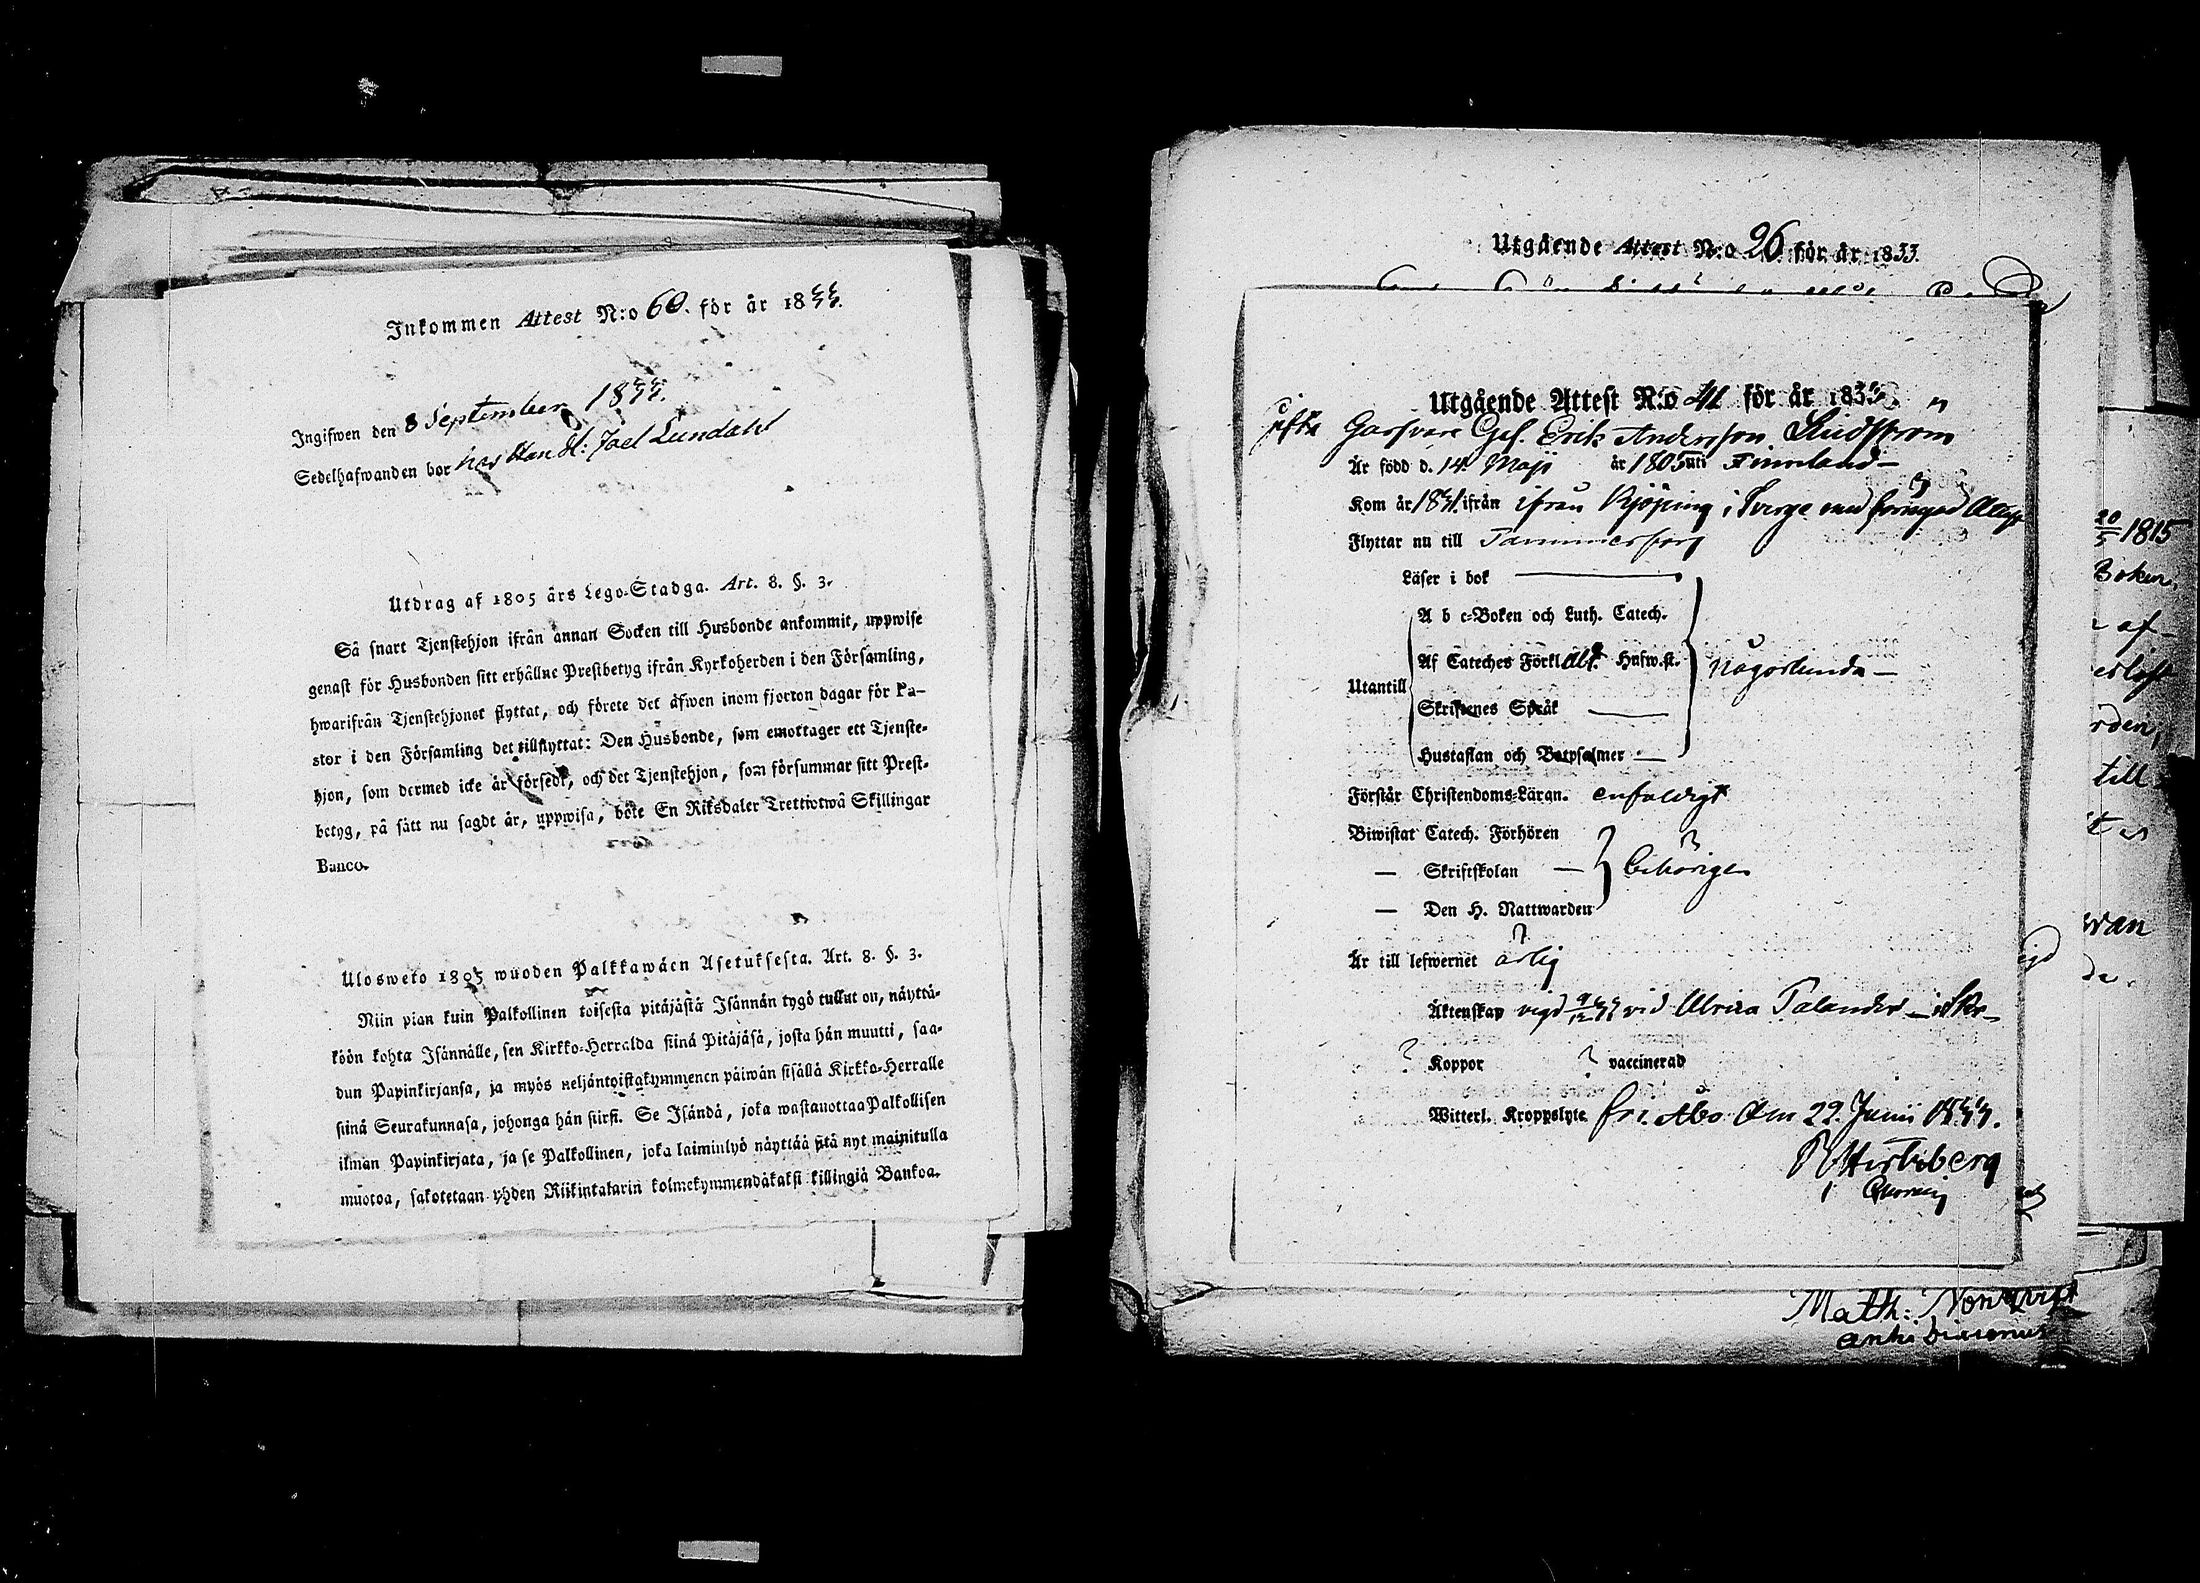 Inkommen Attest N:o 60. för år 1833.
Ingifwen den 8 September 1833.
Sedelhafwanden bor hos Han dl: Joel Lundahl
Utdrag af 1805 års Lego-Stadga. Art. 8. §. 3.
Så snart Tjenstehjon ifrån annan Socken till Husbonde ankommit, uppwise
genast för Husbonden sitt erhållne Prestbetyg ifrån Kyrkoherden i den Församling,
hwarifrån Tjenstehjonet flyttat, och förete det äfwen inom fjorton dagar för Pa-
stor i den Församling det tillflyttat: Den Husbonde, som emottager ett Tjenste-
hjon, som dermed icke är försedt, och det Tjenstehjon, som försummar sitt Prest-
betyg, på sätt nu sagdt är, uppwisa, böte En Riksdaler Trettiotwå Skillingar
Banco.
Ulosweto 1805 wuoden Palkkawäen Asetuksesta. Art. 8. §. 3.
Niin pian kuin Palkollinen toisesta pitäjästä Isännän tygö tullut on, näyttä-
köön kohta Isännälle, sen Kirkko-Herralda siinä Pitäjäsä, josta hän muutti, saa-
dun Papinkirjansa, ja myös neljäntoistakymmenen päiwän sisällä Kirkko-Herralle
siinä Seurakunnasa, johonga hän siirsi. Se Isändä, joka wastanottaa Palkollisen
ilman Papinkirjata, ja se Palkollinen, joka laiminlyö näyttää sitä nyt mainitulla
muotoa, sakotetaan yhden Riikintalarin kolmekymmendäkaksi killingiä Bankoa.
Utgående Attest N:o 26 för år 1833.
Utgående Attest N:o 41 för år 1833
gifta Garfvare Ges. Erik Andersson Lindström
Är född d. 14 Maji år 1805 uti Finnland
Kom år 1831 ifrån ifrån Kjöping i Sverge med Attest
Flyttar nu till Tammerfors
Läser i bok
A b c-Boken och Luth. Catech.
Af Cateches Förkl. Hufw.st.
Utantill någorlunda
Skriftenes Språk
Hustaflan och Botpsalmer
Förstår Christendoms-Läran. enfaldigt
Biwistat Catech. Förhören
— Skriftskolan — behörigen
— Den H. Nattwarden
Är till lefwernet ärlig
Äktenskap vigd 9/12 32 vid Ulrica Talander
? Koppor ? vaccinerad
Witterl. Kroppslyte fri. Åbo den 22 Junii 1833.
Math: Nonqvist
20/5 1815
Boken
af-
rden,
till
wan